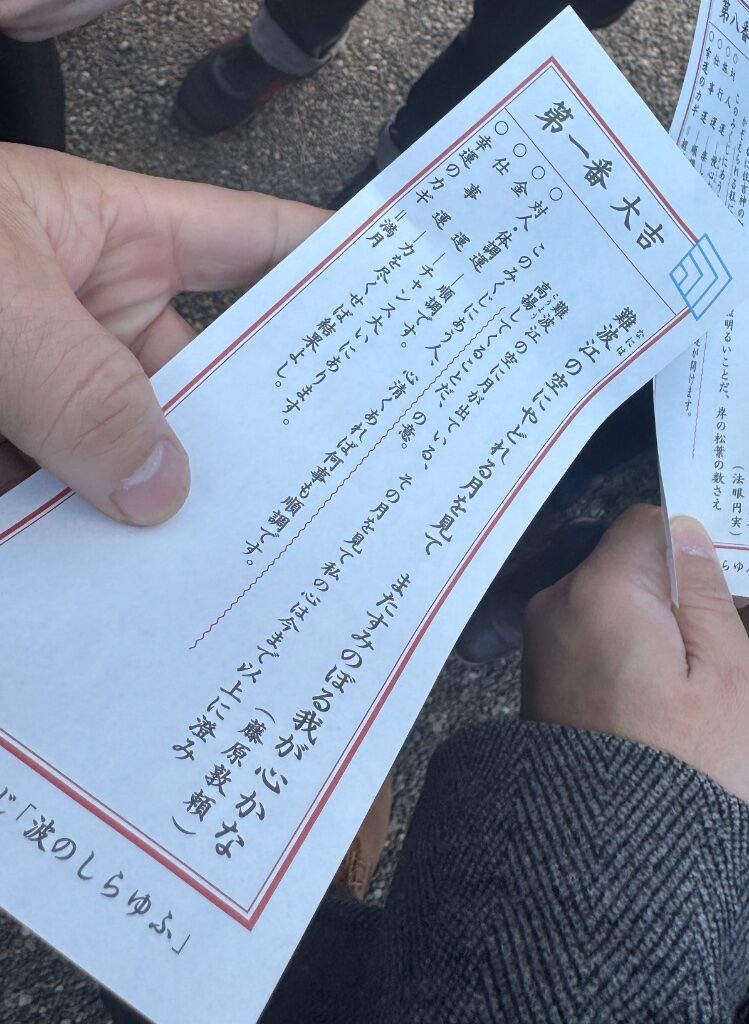 第一番 大吉
なには
難波江の空にやどれる月を見て またすみのぼる我が心かな
(藤原敦頼)
難波江の空に月が出ている、その月を見て私の心は今まで以上に澄み
こうよう
高揚してくることだ、の意。
このみくじにあう人、心清くあれば何事も順調です。
○対人・体調運―順調です。
○金運―チャンス大いにあります。
○仕事運―力を尽くせば結果よし。
○幸運のカギ=満月
じ「波のしらゆふ」
第八番
(法眼円実)
明るいことだ、岸の松葉の数さえ
が開けます。
幸運のカギ